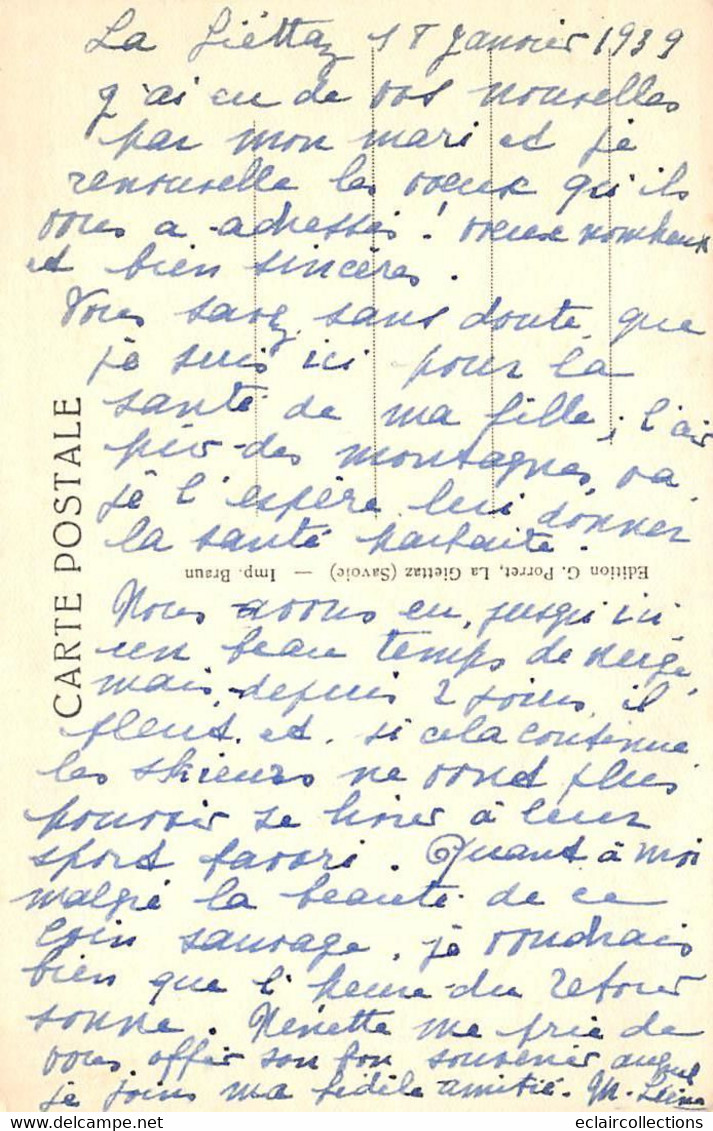 La Giéttaz 18 Janvier 1939
J'ai eu de vos nouvelles
par mon mari et je
renouvelle les voeux qu'ils
vous a adressés ! voeux nombeux
et bien sincères.
Vous savez sans doute que
je suis ici pour la
santé de ma fille, l'air
pur des montagnes, va,
je l'espère lui donner
la santé parfaite.
Edition G. Porret, La Giettaz (Savoie) — Imp. Braun
CARTE POSTALE
Nous avons eu, jusqu'ici
un beau temps de neige,
mais, depuis 2 jours, il
pleut, et, si cela continue
les skieurs ne vont plus
pouvoir se livrer à leur
sport favori. Quant à moi
malgré la beauté de ce
coin sauvage, je voudrais
bien que l'heure du retour
sonne. Nénette me prie de
vous offrir son bon souvenir auquel
je joins ma fidèle amitié. M.
eclaircollections.com